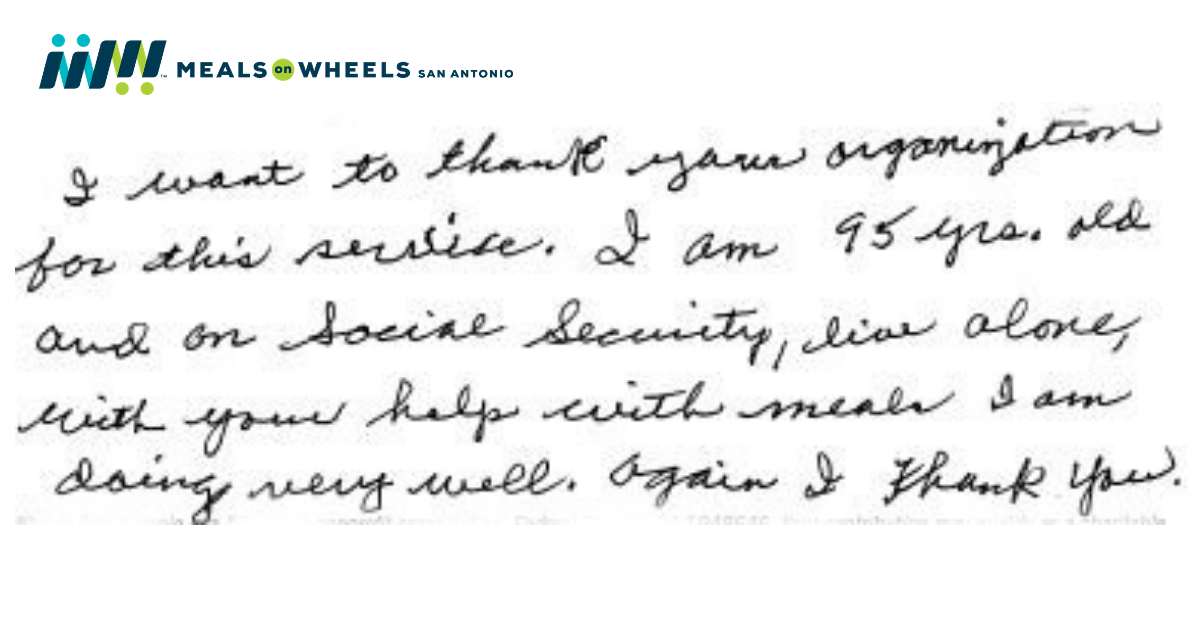 MEALS on WHEELS SAN ANTONIO
I want to thank your organization
for this service. I am 95 yrs. old
and on Social Security, live alone,
with your help with meals I am
doing very well. Again I Thank You.